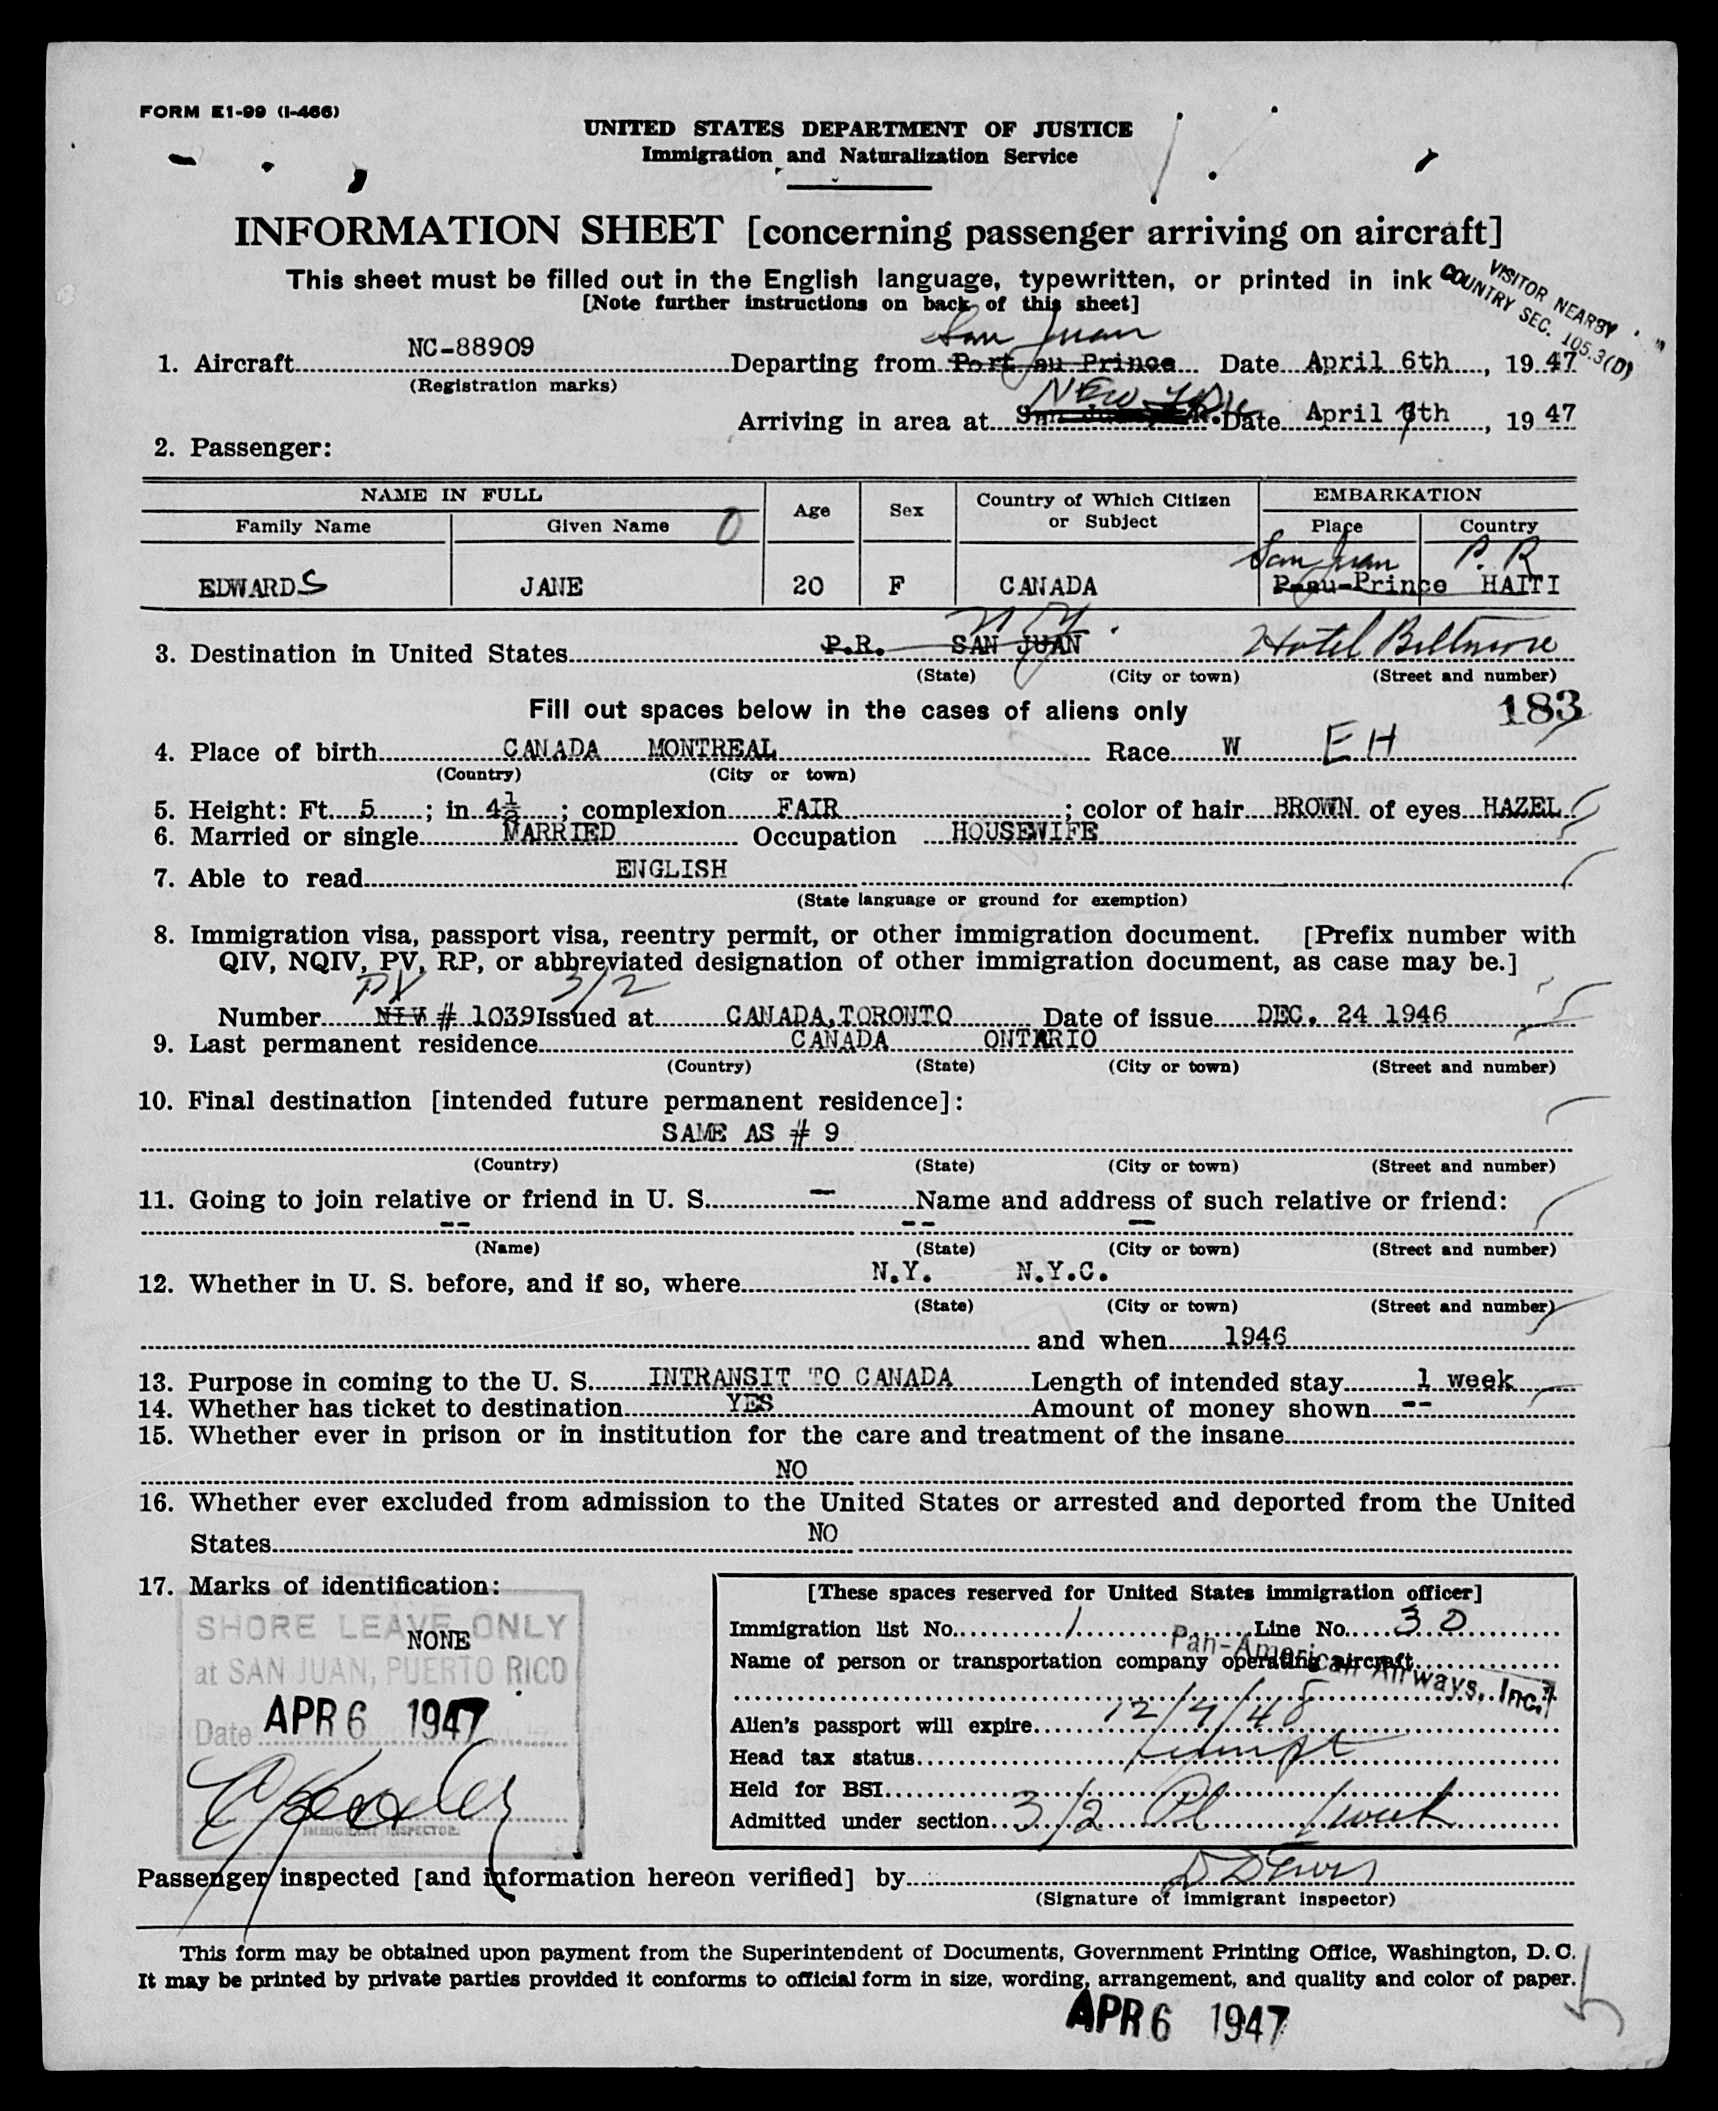 FORM E1-99 (I-466)
UNITED STATES DEPARTMENT OF JUSTICE
Immigration and Naturalization Service
INFORMATION SHEET [concerning passenger arriving on aircraft]
This sheet must be filled out in the English language, typewritten, or printed in ink
[Note further instructions on back of this sheet]
VISITOR NEARBY
COUNTRY SEC. 105.3(D)
San Juan
1. Aircraft NC-88909 Departing from Port au Prince Date April 6th, 1947
(Registration marks)
New York
Arriving in area at San Juan P.R. Date April 7th, 1947
2. Passenger:
NAME IN FULL Age Sex Country of Which Citizen or Subject EMBARKATION
Family Name Given Name 0 Place Country
San Juan P.R
EDWARDS JANE 20 F CANADA P-au-Prince HAITI
N Y.
3. Destination in United States P.R. SAN JUAN Hotel Biltmore
(State) (City or town) (Street and number)
Fill out spaces below in the cases of aliens only
183
4. Place of birth CANADA MONTREAL Race W EH
(Country) (City or town)
5. Height: Ft. 5; in 4½; complexion FAIR; color of hair BROWN of eyes HAZEL
6. Married or single MARRIED Occupation HOUSEWIFE
7. Able to read ENGLISH
(State language or ground for exemption)
8. Immigration visa, passport visa, reentry permit, or other immigration document. [Prefix number with
QIV, NQIV, PV, RP, or abbreviated designation of other immigration document, as case may be.]
PV 3/2
Number NIV # 1039 Issued at CANADA,TORONTO Date of issue DEC. 24 1946
9. Last permanent residence CANADA ONTARIO
(Country) (State) (City or town) (Street and number)
10. Final destination [intended future permanent residence]:
SAME AS # 9
(Country) (State) (City or town) (Street and number)
11. Going to join relative or friend in U. S. -- Name and address of such relative or friend:
-- -- --
(Name) (State) (City or town) (Street and number)
12. Whether in U. S. before, and if so, where N.Y. N.Y.C.
(State) (City or town) (Street and number)
and when 1946
13. Purpose in coming to the U. S. INTRANSIT TO CANADA Length of intended stay 1 week
14. Whether has ticket to destination YES Amount of money shown --
15. Whether ever in prison or in institution for the care and treatment of the insane
NO
16. Whether ever excluded from admission to the United States or arrested and deported from the United
States NO
17. Marks of identification:
NONE
SHORE LEAVE ONLY
at SAN JUAN, PUERTO RICO
Date APR 6 1947
IMMIGRANT INSPECTOR
[These spaces reserved for United States immigration officer]
Immigration list No. 1 Line No. 30
Name of person or transportation company operating aircraft
Pan-American Airways, Inc.
Alien's passport will expire 12/7/48
Head tax status exempt
Held for BSI
Admitted under section 3/2 Pl 1 week
Passenger inspected [and information hereon verified] by
(Signature of immigrant inspector)
This form may be obtained upon payment from the Superintendent of Documents, Government Printing Office, Washington, D. C.
It may be printed by private parties provided it conforms to official form in size, wording, arrangement, and quality and color of paper.
APR 6 1947